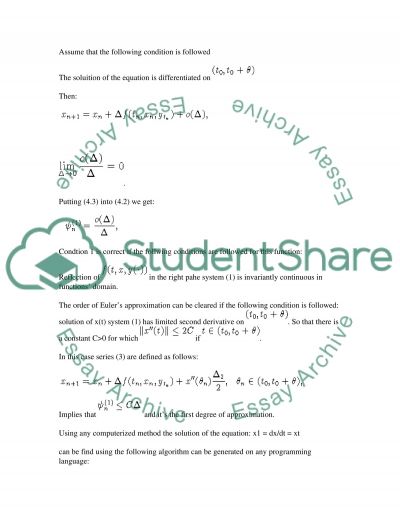 Assume that the following condition is followed
The soluition of the equation is differentiated on (t₀, t₀ + θ)
Then:
xₙ₊₁ = xₙ + Δf(tₙ, xₙ, y_{tₙ}) + o(Δ),
lim_{Δ→0} o(Δ)/Δ = 0
.
Putting (4.3) into (4.2) we get:
ψₙ⁽¹⁾ = o(Δ)/Δ,
Condtion 1 is correct if the follwing conditions are followed for this function:
Reflection of f(t, x, y(·)) in the right pahe system (1) is invariantly continuous in
functions’ domain.
The order of Euler’s approximation can be cleared if the following condition is followed:
solution of x(t) system (1) has limited second derivative on (t₀, t₀ + θ). So that there is
a constant C>0 for which ‖x″(t)‖ ≤ 2C if t ∈ (t₀, t₀ + θ).
In this case series (3) are defined as follows:
xₙ₊₁ = xₙ + Δf(tₙ, xₙ, y_{tₙ}) + x″(θₙ) Δ²/2, θₙ ∈ (t₀, t₀ + θ),
Implies that ψₙ⁽¹⁾ ≤ CΔ and it’s the first degree of approximation.
Using any computerized method the solution of the equation: x1 = dx/dt = xt
can be find using the following algorithm can be generated on any programming
language:
StudentShare
Essay Archive
Essay Archive
Essay Archive
Essay Archive